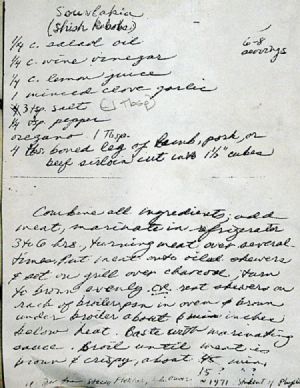 Souvlakia
(Shish Kebobs)
1/4 c. salad oil
6-8 servings
1/4 c. wine vinegar
1/4 c. lemon juice
1 minced clove garlic
3 tsp. salt (1 Tbsp)
1/4 tsp pepper
oregano 1 Tbsp.
4 lbs. boned leg of lamb, pork, or
beef sirloin cut into 1½" cubes
Combine all ingredients; add
meat, marinate in refrigerator
3 to 6 hrs, turning meat over several
times. Put meat onto oiled skewers
& set on grill over charcoal, turn
to brown evenly. OR set skewers on
rack of broiler pan in oven & brown
under broiler about 6 inches
below heat. Baste with marinating
sauce. Broil until meat is
brown & crispy about 45 min.
15 ? ?
1971. Student of